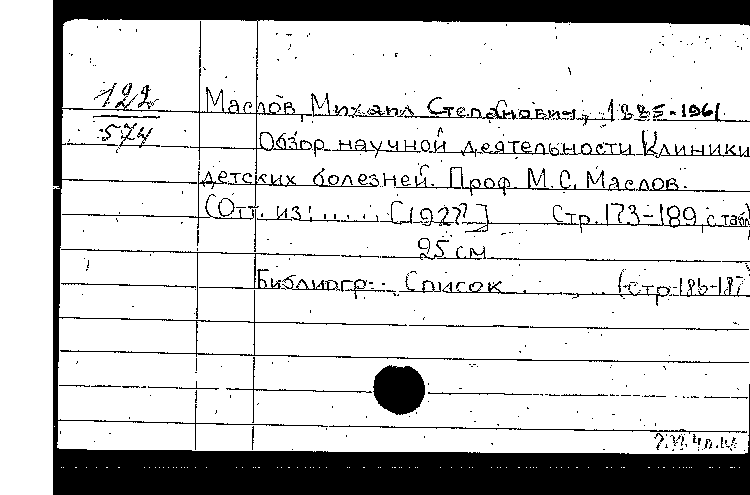 122
574
Маслов, Михаил Степанович, 1885-1961.
Обзор научной деятельности Клиники
детских болезней. Проф. М.С. Маслов.
(Отт. из: ..... [1927?] Стр. 173-189, с табл
25 см
Библиогр.: Список (стр. 186-187